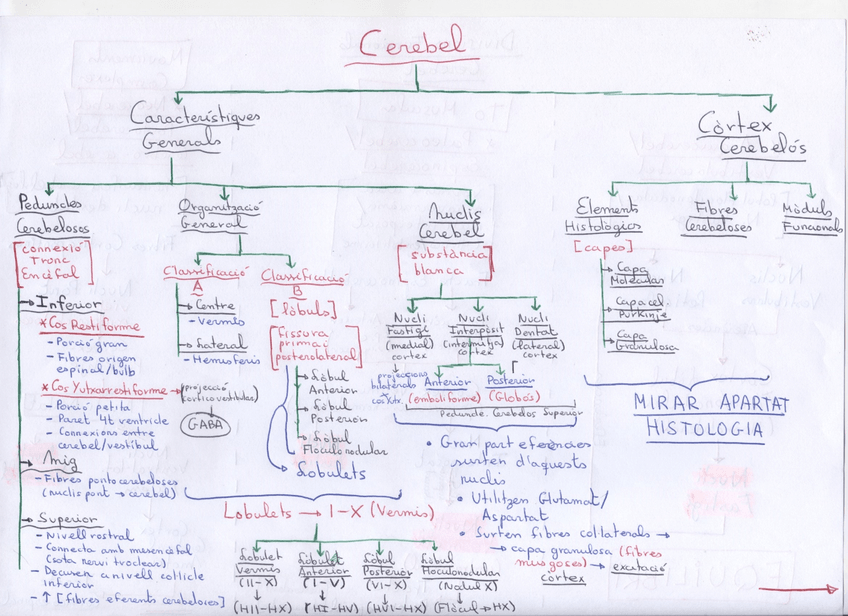 Cerebel
Característiques
Generals
Còrtex
Cerebelós
Peduncles
Cerebelosos
[connexió
Tronc
Encèfal]
Inferior
*Cos Restiforme
- Porció gran
- Fibres origen
espinal/bulb
*Cos Yutxarrestiforme
- Porció petita
- Paret 4t ventricle
- Connexions entre
cerebel/vestíbul
projecció
cortico vestibular
GABA
Mig
- Fibres pontocerebeloses
(nuclis pont → cerebel)
Superior
- Nivell rostral
- Connecta amb mesencèfal
(sota nervi troclear)
- Decusen a nivell col·licle
inferior
- ↑ [fibres eferents cerebeloses]
Organització
General
Classificació
A
Centre
- Vermis
Lateral
- Hemisferis
Classificació
B
[lòbuls]
[fissura
prima i
posterolateral]
Lòbul
Anterior
Lòbul
Posterior
Lòbul
Floculonodular
Lobulets
Lobulets → I-X (Vermis)
Lobulet
vermis
(II-X)
(HII-HX)
Lobulet
Anterior
(I-V)
(HI-HV)
Lòbul
Posterior
(VI-X)
(HVI-HX)
Lòbul
Floculonodular
(Nodul X)
(Flòcul → HX)
Nuclis
Cerebel
[substància
blanca]
Nucli
Fastigi
(medial)
cortex
projeccions
bilaterals
Nucli
Interpòsit
(intermitja)
cortex
Nucli
Dentat
(lateral)
cortex
Anterior
(emboliforme)
Posterior
(Globós)
Peduncle Cerebelós Superior
• Gran part eferències
surten d'aquests
nuclis
• Utilitzen Glutamat/
Aspartat
• Surten fibres collaterals →
→ capa granulosa (fibres
musgoses) → excitació
còrtex
Elements
Histològics
[capes]
Capa
Molecular
Capa cel
Purkinje
Capa
Granulosa
Fibres
Cerebeloses
Mòduls
Funcionals
MIRAR APARTAT
HISTOLOGIA